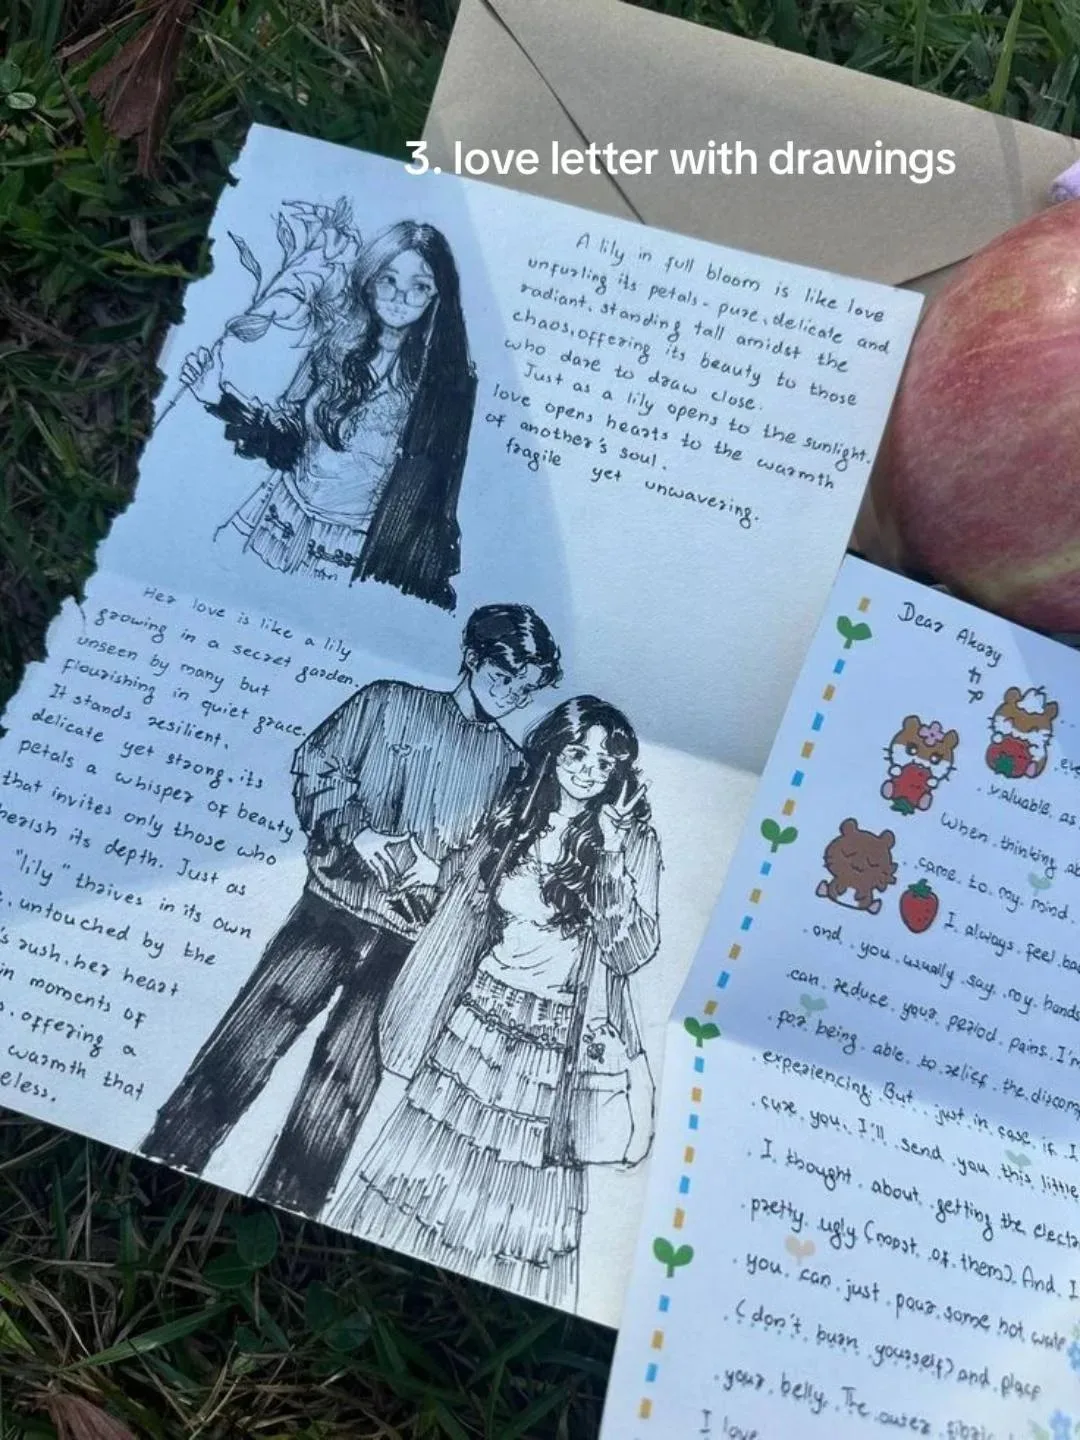 3. love letter with drawings
A lily in full bloom is like love
unfurling its petals - pure, delicate and
radiant, standing tall amidst the
chaos, offering its beauty to those
who dare to draw close.
Just as a lily opens to the sunlight.
love opens hearts to the warmth
of another's soul.
fragile yet unwavering.
Her love is like a lily
growing in a secret garden.
unseen by many but
flourishing in quiet grace.
It stands resilient.
delicate yet strong, its
petals a whisper of beauty
that invites only those who
its depth. Just as
"lily" thrives in its own
untouched by the
rush, her heart
in moments of
offering a
warmth that
Dear Akary
valuable. as
When. thinking
came. to. my. mind.
I. always. feel.
and. you. usually. say. my. hands
can. reduce. your. period. pains. I'm
for. being. able. to. relief. the.
experiencing. But.. just. in. case. if. I
cure. you. I'll. send. you. this. little
I. thought. about. getting. the.
pretty. ugly (most. of. them). And. I
you. can. just. pour. some. hot
(don't. burn. yourself) and. place
your. belly. The. outer.
I love